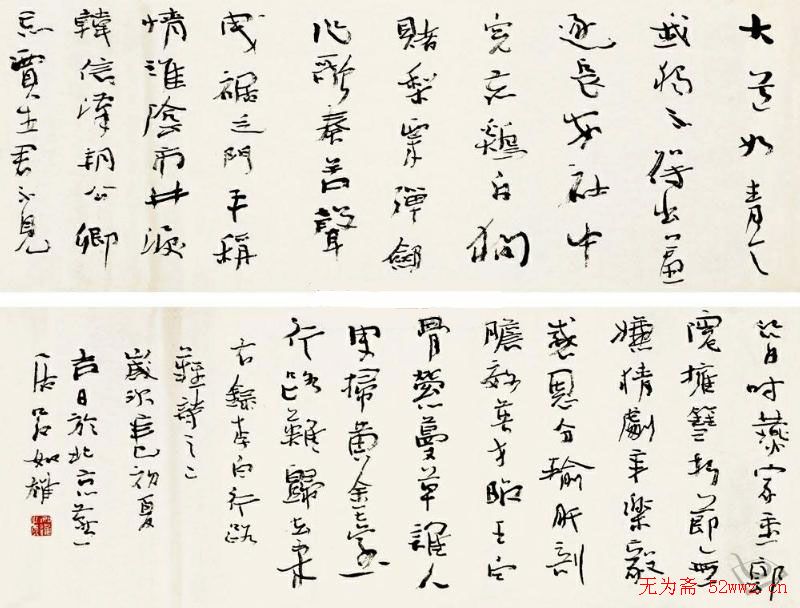 大道如青天
我獨不得出羞
逐長安社中
兒赤雞白狗
賭梨栗彈劍
作歌奏苦聲
曳裾王門不稱
情淮陰市井笑
韓信漢朝公卿
忌賈生君不見
昔時燕家重郭
隗擁篲折節無
嫌猜劇辛樂毅
感恩分輸肝剖
膽效英才昭王白
骨縈蔓草誰人
更掃黃金臺
行路難歸去來
右錄李白行路
難詩之二
歲次辛巳初夏
吉日於北京燕
居呂如雄
无为斋-52wwz.cn